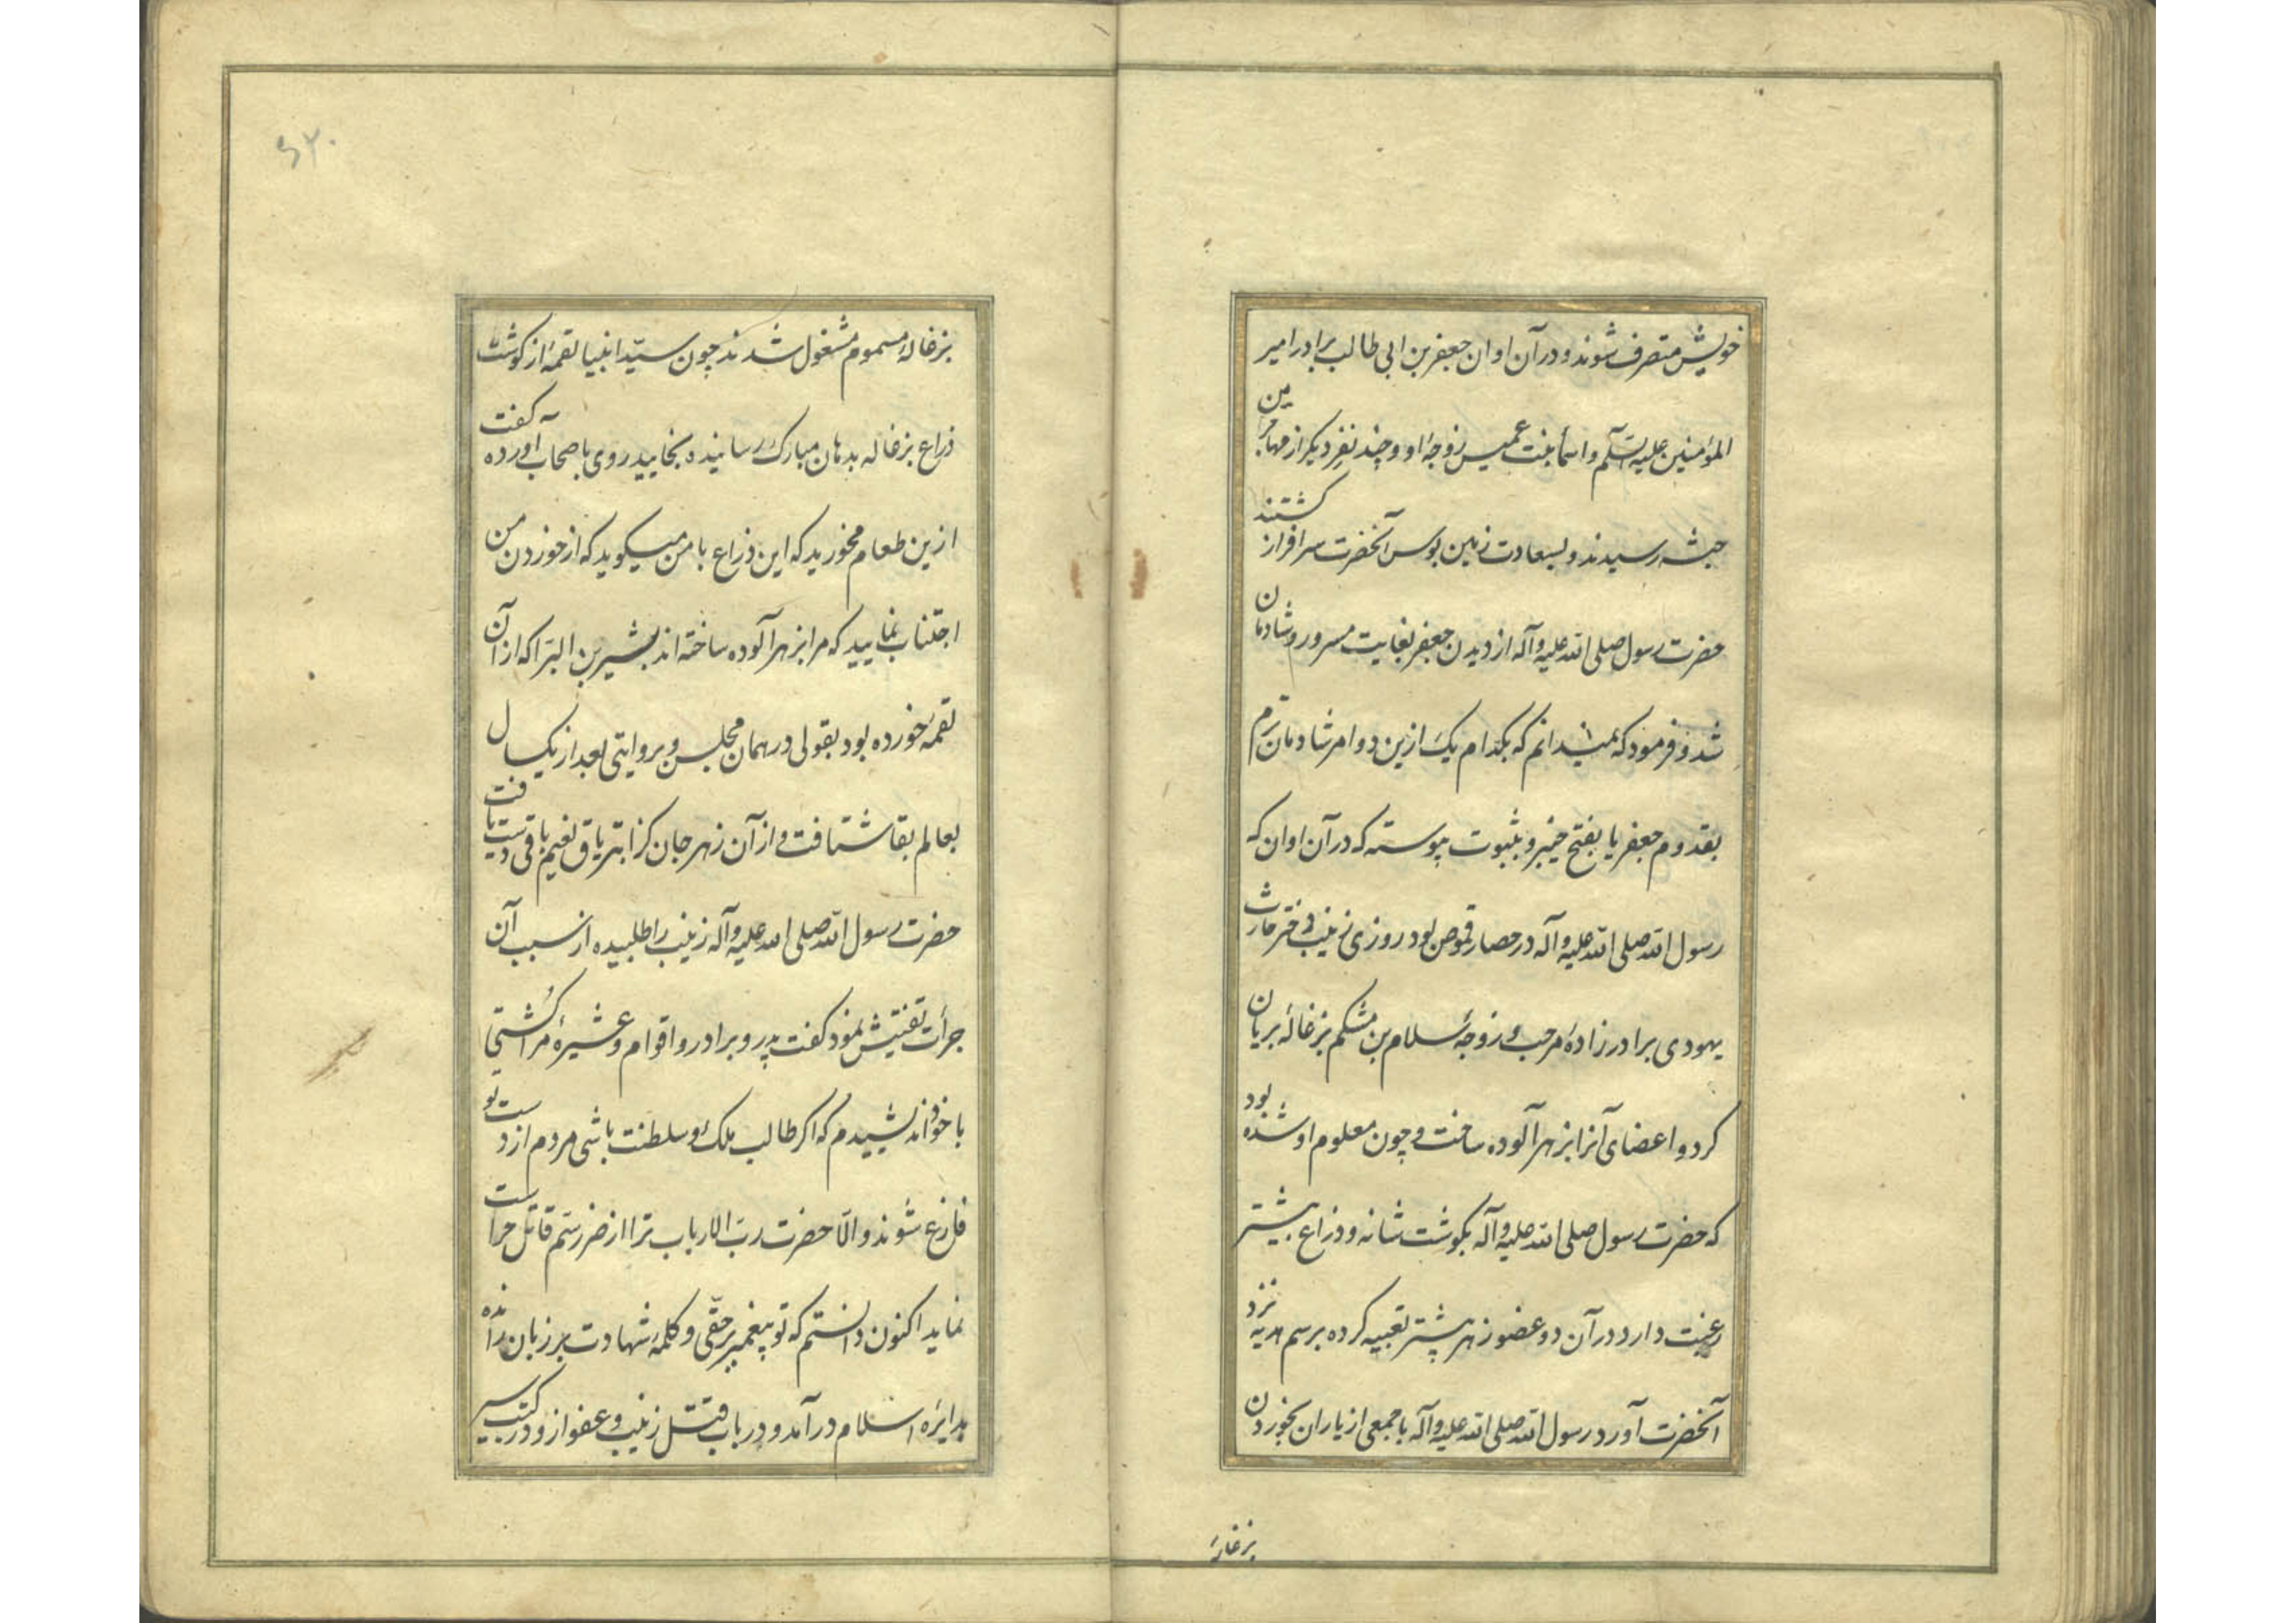 خویش متصرف شوند و در آن اوان جعفر بن ابی طالب برادر امیر
المؤمنین علیه السلم و اسمأ بنت عمیس زوجهٔ او و چند نفر دیکر از مهاجرین
حبشه رسیدند و بسعادت زمین بوس آنحضرت سرافراز کشتند
حضرت رسول صلی الله علیه وآله از دیدن جعفر بغایت مسرور و شادمان
شد و فرمود که نمیدانم که بکدام یک ازین دو امر شادمان ترم
بقدوم جعفر یا بفتح خیبر و بثبوت پیوسته که در آن اوان که
رسول الله صلی الله علیه وآله در حصار قموص بود روزی زینب دختر حارث
یهودی برادرزادهٔ مرحب و زوجهٔ سلام بن مشکم بزغالهٔ بریان
کرد و اعضای آنرا بزهر آلوده ساخت و چون معلوم او شده بود
که حضرت رسول صلی الله علیه وآله بکوشت شانه و ذراع بیشتر
رغبت دارد در آن دو عضو زهر بیشتر تعبیه کرده برسم هدیه نزد
آنحضرت آورد رسول الله صلی الله علیه وآله با جمعی از یاران بخوردن
بزغالهٔ
۶۲۰
بزغالهٔ مسموم مشغول شدند چون سیّد انبیا لقمهٔ از کوشت
ذراع بزغاله بدهان مبارک رسانیده بخایید روی باصحاب آورده کفت
ازین طعام مخورید که این ذراع با من میکوید که از خوردن من
اجتناب نمایید که مرا بزهر آلوده ساخته اند بشیر بن البرا که از آن
لقمهٔ خورده بود بقولی در همان مجلس و بروایتی بعد از یکسال
بعالم بقا شتافت و از آن زهر جان کزا بتریاق نعیم باقی دست یافت
حضرت رسول الله صلی الله علیه وآله زینب را طلبیده از سبب آن
جرأت تفتیش نمود کفت پدر و برادر و اقوام و عشیرهٔ مرا کُشتی
با خود اندیشیدم که اکر طالب ملک و سلطنت باشی مردم از دست تو
فارغ شوند و الّا حضرت ربّ الارباب ترا از ضرر سم قاتل حراست
نماید اکنون دانستم که تو پیغمبر برحقّی و کلمهٔ شهادت بر زبان رانده
بدایرهٔ اسلام درآمد و در باب قتل زینب و عفو ازو در کتب سیر